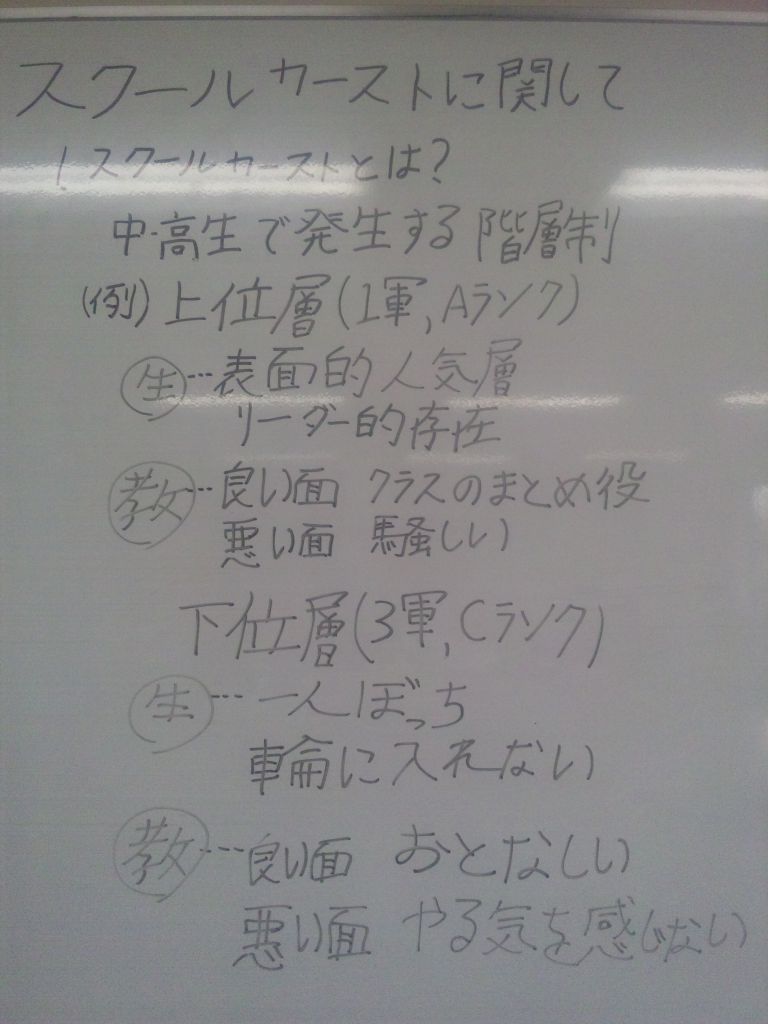 スクールカーストに関して
! スクールカーストとは?
中・高生で発生する階層制
(例) 上位層(1軍,Aランク)
生…表面的人気層
リーダー的存在
教…良い面 クラスのまとめ役
悪い面 騒しい
下位層(3軍,Cランク)
生…一人ぼっち
輪に入れない
教…良い面 おとなしい
悪い面 やる気を感じない